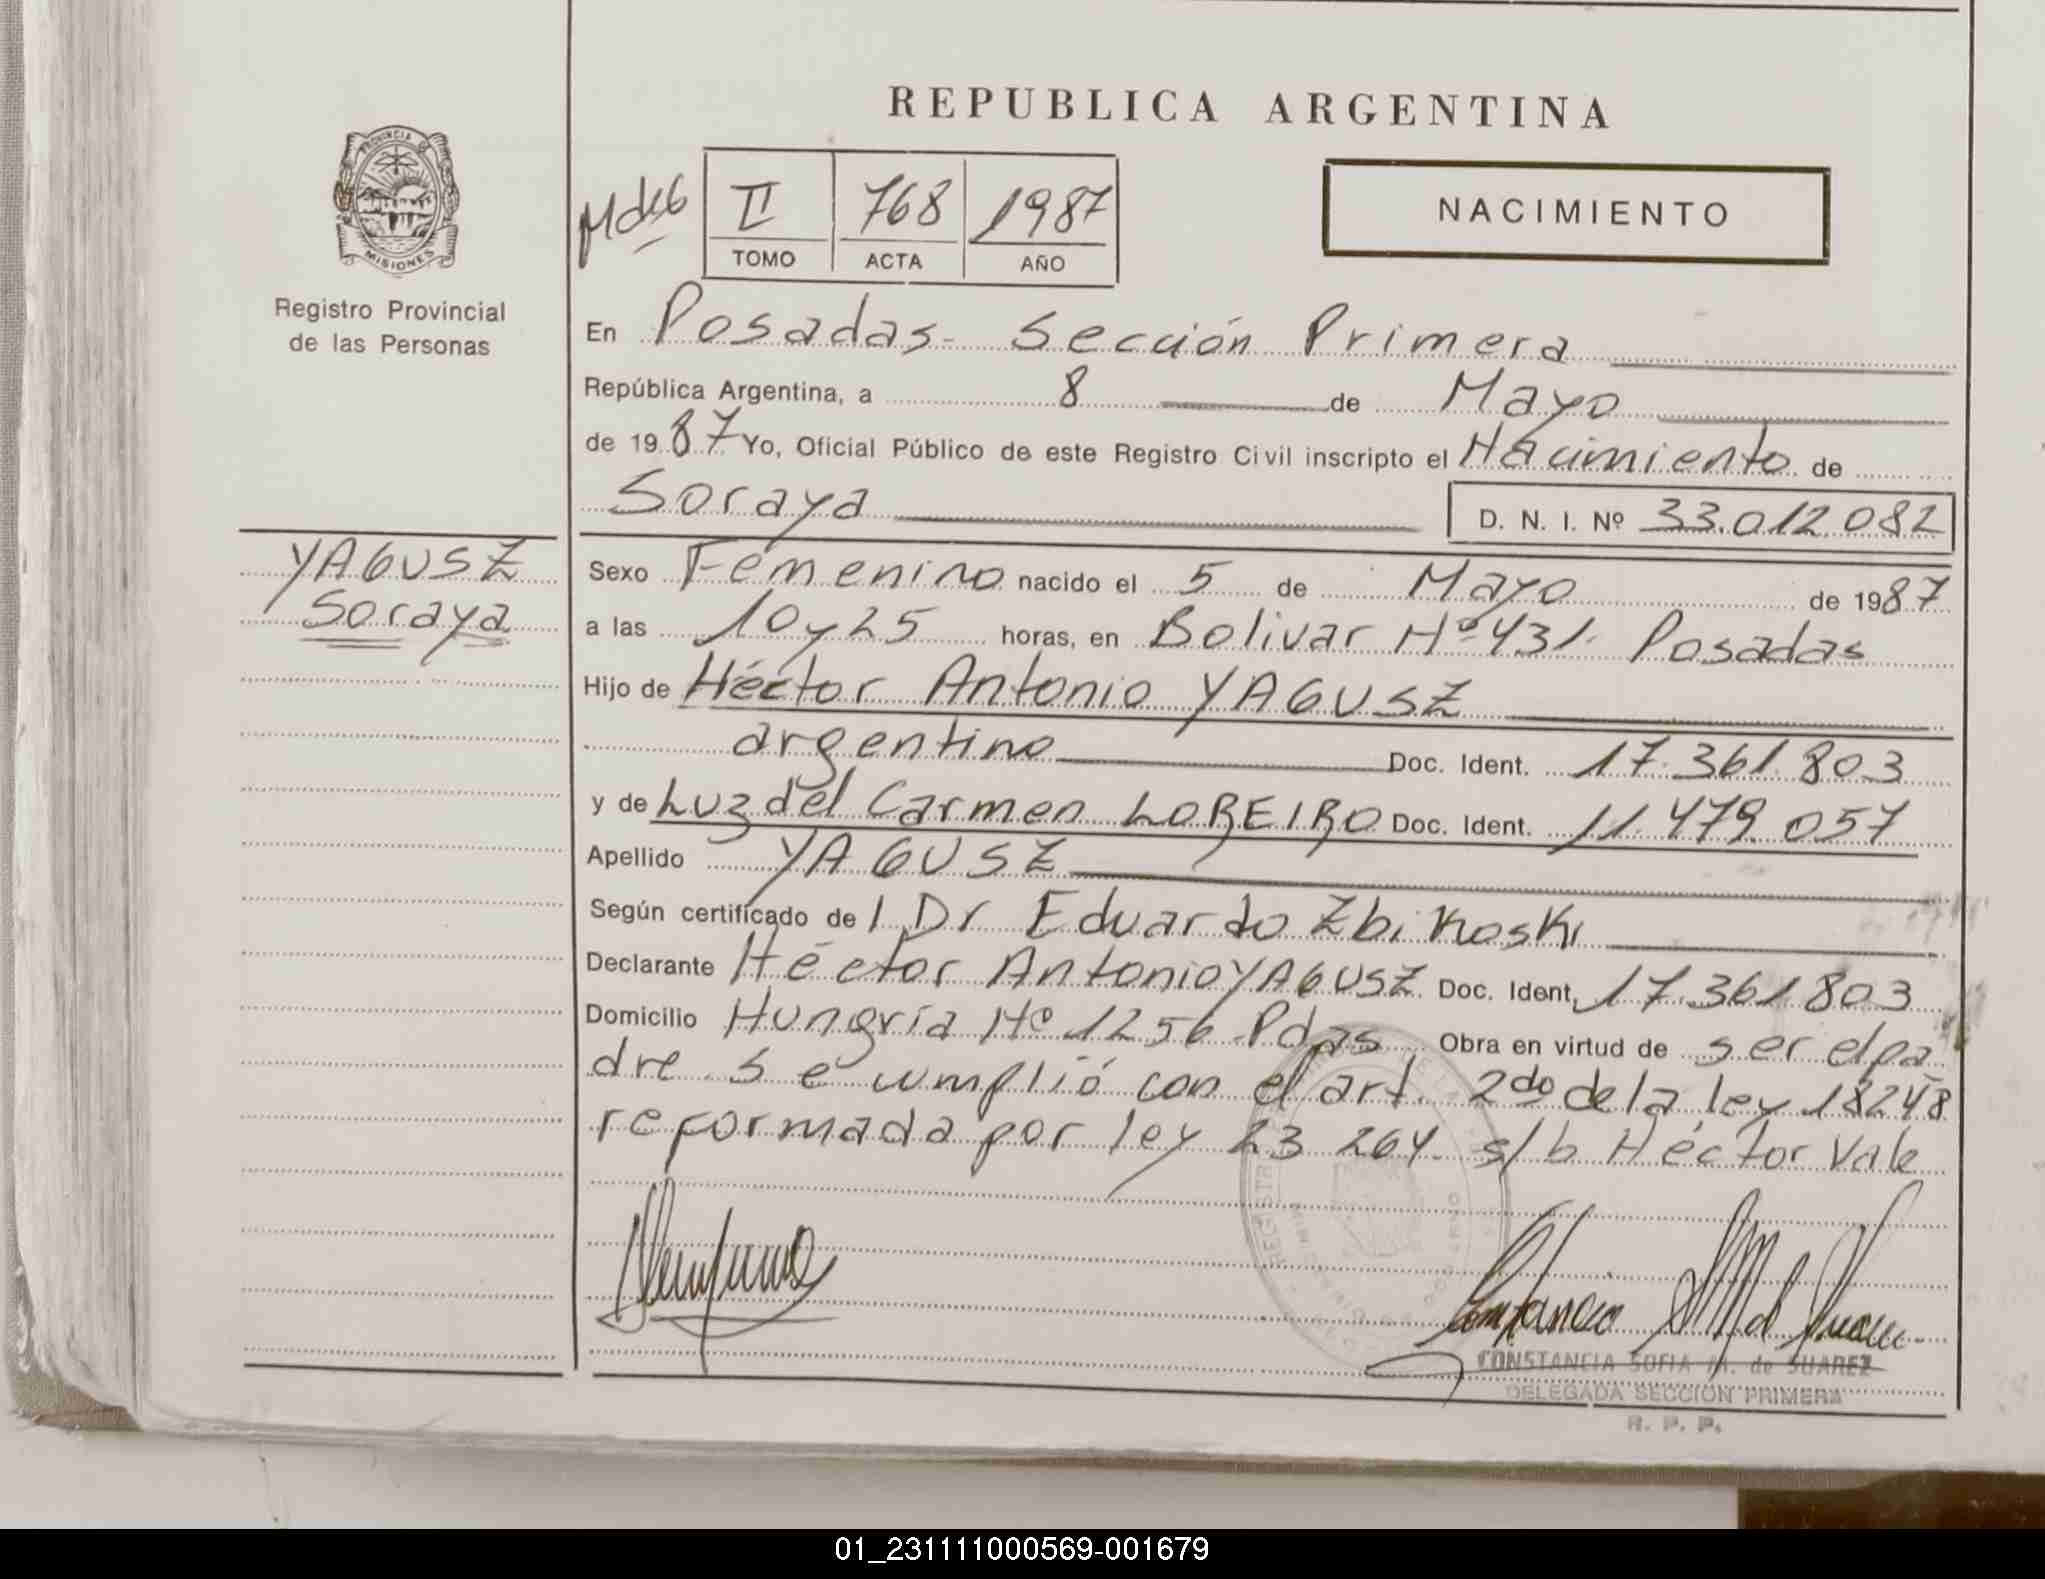 REPUBLICA ARGENTINA
PROVINCIA DE
MISIONES
Registro Provincial
de las Personas
II 768 1987
TOMO ACTA AÑO
NACIMIENTO
En Posadas - Sección Primera
República Argentina, a 8 de Mayo
de 1987 Yo, Oficial Público de este Registro Civil inscripto el Nacimiento de
Soraya D. N. I. Nº 33.012.082
YAGUSZ
Soraya
Sexo Femenino nacido el 5 de Mayo de 1987
a las 10 y 25 horas, en Bolivar Nº 431. Posadas
Hijo de Héctor Antonio YAGUSZ
argentino Doc. Ident. 17.361.803
y de Luz del Carmen LOREIRO Doc. Ident. 11.479.057
Apellido YAGUSZ
Según certificado de l Dr Eduardo Zbikoski
Declarante Héctor Antonio YAGUSZ Doc. Ident. 17.361.803
Domicilio Hungría Nº 1256 Pdas Obra en virtud de ser el pa
dre. Se cumplió con el art. 2do de la ley 18248
reformada por ley 23.264. s/b Héctor Vale
CONSTANCIA SOFIA M. de SUAREZ
DELEGADA SECCION PRIMERA
R. P. P.
01_231111000569-001679